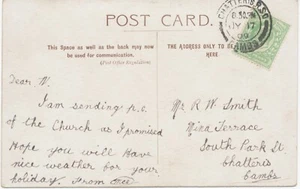 POST CARD.
This Space as well as the back may now
be used for communication.
(Post Office Regulation)
THE ADDRESS ONLY TO BE
HERE
CHATTERIS R.S.O.
8.30PM
JY 17
09
CAMBS
Dear W.
I am sending p.c.
of the Church as I promised
Hope you will have
nice weather for your
holiday. From
Mr R W Smith
Terrace
South Park St
Chatteris
Cambs